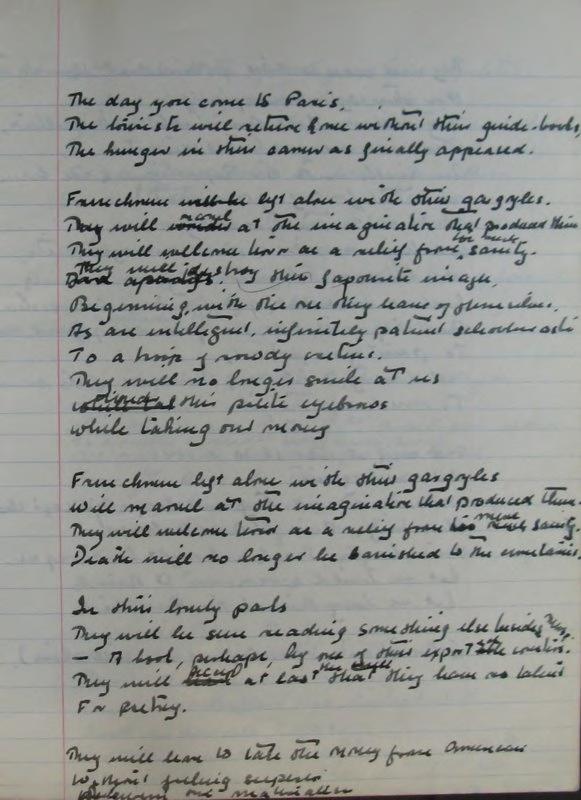 The day you come to Paris,
The tourists will return home without their guide-books,
The hunger in their cameras finally appeased.
Frenchmen will be left alone with their gargoyles.
They will wonder marvel at the imagination that produced them
They will welcome love as a relief from too much sanity.
They will destroy their favourite image,
Beginning with the one they have of themselves,
As an intelligent, infinitely patient
To a troop of rowdy
They will no longer smile at us
their petite eyebrows
while taking our money
Frenchmen left alone with their gargoyles
Will marvel at the imagination that produced them.
They will welcome love as a relief from too much sanity.
Death will no longer be banished to the cemeteries.
In their lovely parks
They will be seen reading something else besides
— A book, perhaps, by one of their
They will at last that they have no talent
For poetry.
They will learn to take the money from Americans
Without feeling superior
our